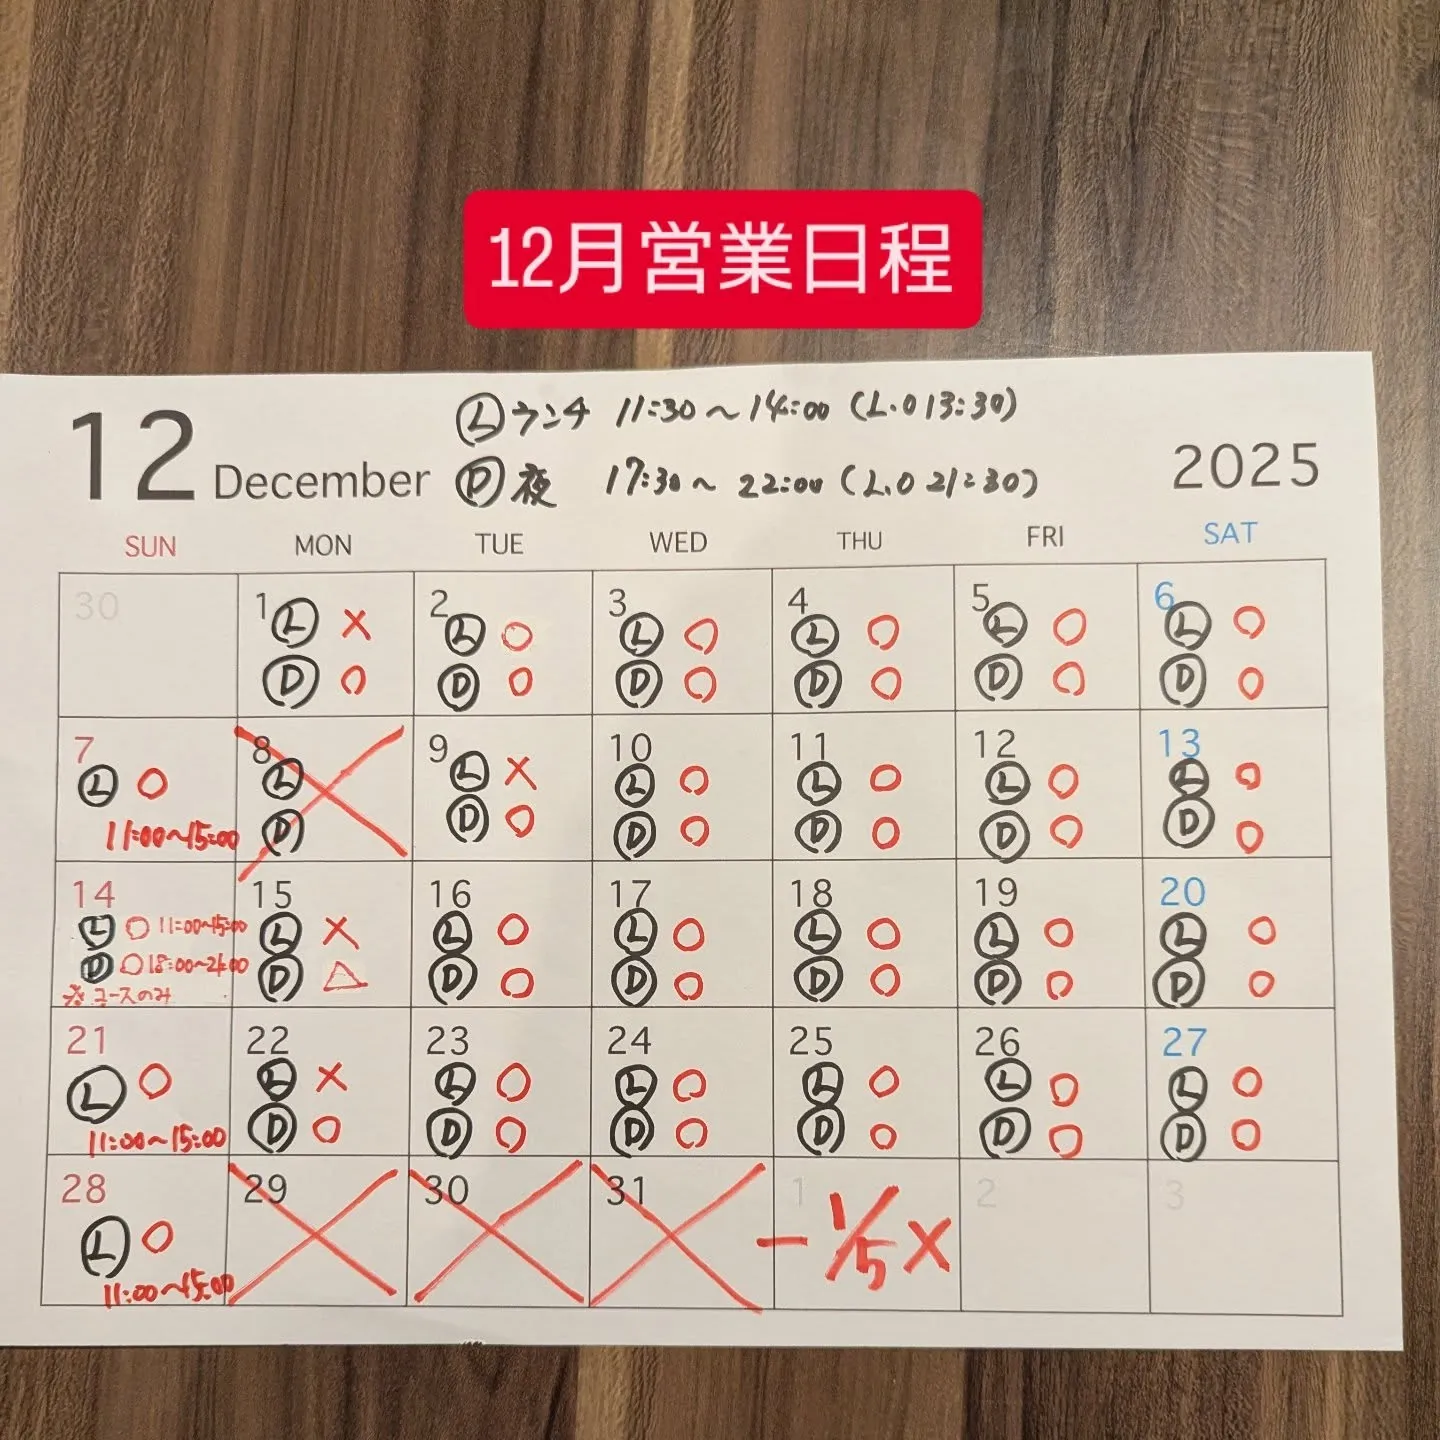 12月営業日程
12 December 2025
Ⓛランチ 11:30～14:00 (L.O 13:30)
Ⓓ夜 17:30～22:00 (L.O 21:30)
SUN MON TUE WED THU FRI SAT
30 1 2 3 4 5 6
Ⓛ × Ⓛ ○ Ⓛ ○ Ⓛ ○ Ⓛ ○ Ⓛ ○
Ⓓ ○ Ⓓ ○ Ⓓ ○ Ⓓ ○ Ⓓ ○ Ⓓ ○
7 8 9 10 11 12 13
Ⓛ ○ Ⓛ Ⓛ × Ⓛ ○ Ⓛ ○ Ⓛ ○ Ⓛ ○
11:00～15:00 Ⓓ Ⓓ ○ Ⓓ ○ Ⓓ ○ Ⓓ ○ Ⓓ ○
14 15 16 17 18 19 20
Ⓛ ○ 11:00～15:00 Ⓛ × Ⓛ ○ Ⓛ ○ Ⓛ ○ Ⓛ ○ Ⓛ ○
Ⓓ ○ 18:00～21:00 Ⓓ △ Ⓓ ○ Ⓓ ○ Ⓓ ○ Ⓓ ○ Ⓓ ○
※コースのみ
21 22 23 24 25 26 27
Ⓛ ○ Ⓛ × Ⓛ ○ Ⓛ ○ Ⓛ ○ Ⓛ ○ Ⓛ ○
11:00～15:00 Ⓓ ○ Ⓓ ○ Ⓓ ○ Ⓓ ○ Ⓓ ○ Ⓓ ○
28 29 30 31 1 2 3
Ⓛ ○ － 1/5 ×
11:00～15:00